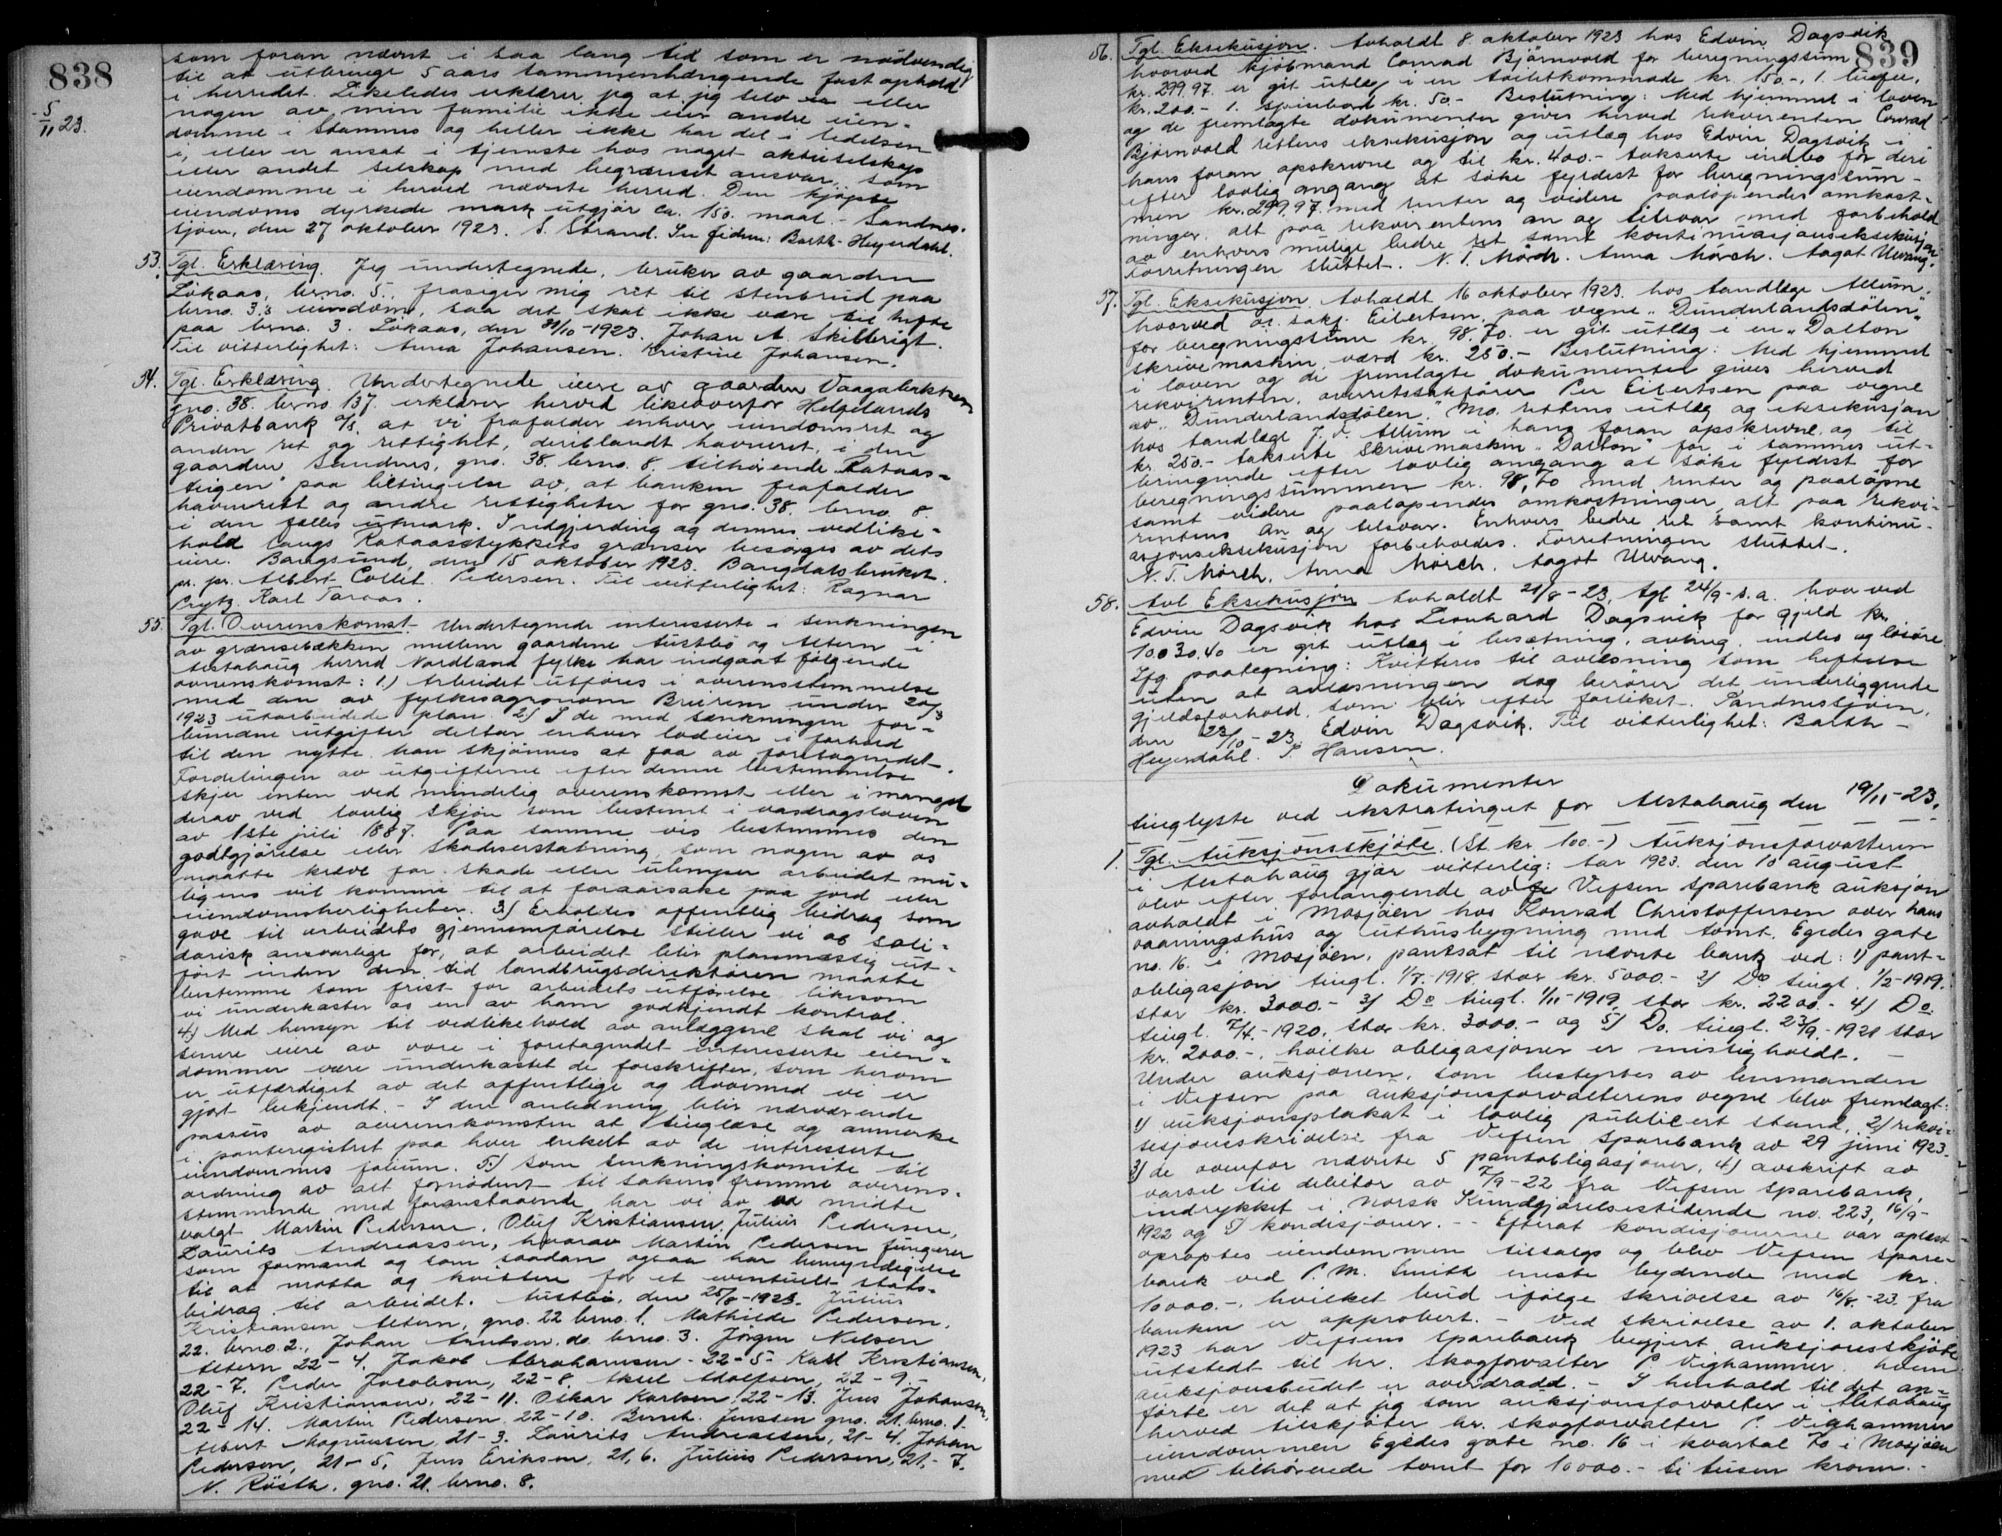 838
5/11 23.
som foran nævnt i saa lang tid som er nödvendig
til at utbruge 5 aars sammenhængende fast ophold
i herredet. Likeledes erklærer jeg at jeg selv eller
nogen av min familie ikke eier andre eien-
domme i Stamnes og heller ikke har del i ledelsen
i, eller er ansat i tjeneste hos noget aktieselskap
eller andet selskap med begrænset ansvar, som
eiendomme i herved nævnte herred. Den kjöpte
eiendoms dyrkede mark utgjör ca. 150. maal. - Sandnes-
sjöen, den 27 oktober 1923. S. Strand. Barth-Heyerdahl.
53. Tgl. Erklæring. Jeg undertegnede, bruker av gaarden
Lökaas, brno. 5., frasiger mig ret til stenbrud paa
brno. 3.s eiendom, saa det skal ikke være til hefte
paa brno. 3. Lökaas, den 30/10-1923. Johan A. Skilbrigt.
Til vitterlighet: Anna Johansen. Kristine Johansen.
54. Tgl. Erklæring. Undertegnede eiere av gaarden Vaagabakken
gno. 38. brno. 137. erklærer herved likeoverfor Helgelands
Privatbank a/s. at vi frafalder enhver eiendomsret og
anden ret og rettighet, deriblandt havneret, i den
gaarden Sandnes, gno. 38. brno. 8. tilhörende Rataas-
teigen" paa betingelse av, at banken frafalder
havnerett og andre rettigheter for gno. 38. brno. 8.
i den fælles utmark. Indgjerding og dennes vedlike-
hold langs Rataasstykkets grænser besörges av dets
eiere. Bangsund, den 15 oktober 1923. Bangdalsbruket.
pr. pr. Albert Collet. Pedersen. Til vitterlighet: Ragnar
Prytz. Karl Taraas.
55. Tgl. Overenskomst. Undertegnede interesserte i senkningen
av grænsebækken mellem gaardene Austbö og Altern i
Alstahaug herred Nordland fylke har indgaat fölgende
overenskomst: 1.) Arbeidet utföres i overensstemmelse
med den av fylkesagronom Breirem under 20/3
1923 utarbeidede plan. 2.) I de med sænkningen for-
bundne utgifter deltar enhver lodeier i forhold
til den nytte han skjönnes at faa av foretagendet.
Fordelingen av utgifterne efter denne bestemmelse
skjer enten ved mindelig overenskomst eller i mangel
derav ved lovlig skjön som bestemt i vasdragsloven
av 1ste juli 1887. Paa samme vis bestemmes den
godtgjörelse eller skadeserstatning, som nogen av os
maatte kræve for skade eller ulemper arbeidet mu-
ligens vil komme til at foraarsake paa jord eller
eiendomsherligheter. 3.) Erholdes offentlig bidrag som
gave til arbeidets gjennemförelse stiller vi os soli-
darisk ansvarlige for, at arbeidet blir planmæssig ut-
fört inden den tid landbrugsdirektören maatte
bestemme som frist for arbeidets utförelse likesom
vi underkaster os en av ham godkjendt kontrol.
4.) Med hensyn til vedlikehold av anlæggene skal vi og
senere eiere av vore i foretagendet interesserte eien-
dommer være underkastet de forskrifter, som herom
er utfærdiget av det offentlige og hvormed vi er
gjort bekjendt. - I den anledning blir nærværende
passus av overenskomsten at tinglæse og anmerke
i panteregistret paa hver enkelt av de interesserte
eiendommes folium. 5.) Som senkningskomite til
ordning av alt fornödent til sakens fremme overens-
stemmende med foranstaaende har vi av vor midte
valgt Martin Pedersen, Oluf Kristiansen, Julius Pedersen,
Laurits Andreassen, hvorav Martin Pedersen fungerer
som formand og som saadan ogsaa har bemyndigelse
til at motta og kvittere for et eventuelt stats-
bidrag til arbeidet. Austbö, den 25/8-1923. Julius
Kristiansen Altern, gno. 22 brno. 1. Mathilde Pedersen,
22. brno. 2., Johan Arntsen, do. brno. 3. Jörgen Nilsen
Altern 22-4. Jakob Abrahamsen - 22-5- Karl Kristiansen,
22-7. Peder Jacobsen, 22-8. Aksel Adolfsen, 22-9.-
Oluf Kristiansen, 22-11. Oskar Karlsen, 22-13. Jens Johansen,
22-14. Martin Pedersen 22-10. Bernh. Jenssen gno. 21. brno. 1.
Albert Magnussen, 21-3. Laurits Andreassen, 21-4. Johan
Pedersen, 21-5, Jens Eriksen, 21, 6. Julius Pedersen, 21-7.
N. Rösth, gno. 21. brno. 8.
839
56. Tgl. Eksekusjon. Avholdt 8. oktober 1923 hos Edvin Dagsvik
hvorved kjöbmand Conrad Björnvold for beregningssum
kr. 299.97. er git utlæg i en toiletkommode kr. 150.-, 1.
kr. 200.- 1. spisebord kr. 50.- Beslutning: Med hjemmel i loven
og de fremlagte dokumenter gives herved rekvirenten Conrad
Björnvold rettens eksekusjon og utlæg hos Edvin Dagsvik i
hans foran opskrevne og til kr. 400.- takserte indbo for deri
efter lovlig omgang at söke fyldest for beregningssum-
men kr. 299.97. med renter og videre paalöpende omkost-
ninger, alt paa rekvirentens an og tilsvar med forbehold
av enhvers mulige bedre ret samt kontinuasjonseksekusjon.
Forretningen sluttet. N. T. Mörch. Anna Mörch. Aagot Ulvang.
57. Tgl. Eksekusjon. Avholdt 16 oktober 1923. hos tandlæge Allum.
hvorved or. sakf. Eilertsen paa vegne „Dunderlandsdölen"
for beregningssum kr. 98.70. er git utlæg i en „Dalton"
skrivemaskin værd kr. 250.- Beslutning: Med hjemmel
i loven og de fremlagte dokumenter gives herved
rekvirenten, overretssakförer Per Eilertsen paa vegne
av „Dunderlandsdölen." Mo. rettens utlæg og eksekusjon
hos tandlæge J. V. Allum i hans foran opskrevne og til
kr. 250.- takserte skrivemaskin „Dalton" for i sammes ut-
bringende efter lovlig omgang at söke fyldest for
beregningssummen kr. 98,70 med renter og paalöpne
samt videre paalöpendes omkostninger, alt paa rekvi-
rentens an og tilsvar. Enhvers bedre ret samt kontinu-
asjonseksekusjon forbeholdes. Forretningen sluttet.
N. T. Mörch. Anna Mörch. Aagot Ulvang.
58. Avl. Eksekusjon avholdt 21/8-23, tgl. 24/9- s.a. hvorved
Edvin Dagsvik hos Leonhard Dagsvik for gjeld kr.
10030.40 er git utlæg i besætning, avling, indbo og lösöre.
Ifg. paategning: Kvitteres til avlæsning som heftelse
uten at avlæsningen dog berörer det underliggende
gjeldsforhold, som blir efter forliket. Sandnessjöen,
den 23/10-23. Edvin Dagsvik. Til vitterlighet: Barth-
Heyerdahl. P. Hansen.
Dokumenter
tinglyste ved ekstratinget for Alstahaug den 19/11-23.
1. Tgl. Auksjonsskjöte. (St. kr. 100.-) Auksjonsforvalteren
i Alstahaug gjör vitterlig: Aar 1923. den 10 august
blev efter forlangende av Vefsen sparebank auksjon
avholdt i Mosjöen hos Konrad Christoffersen over hans
vaaningshus og uthusbygning med tomt, Egedes gate
no. 16. i Mosjöen, pantsat til nævnte bank ved: 1) pant-
obligasjon tingl. 1/7-1918 stor kr. 5000.- 2) Do tingl. 1/2-1919.
stor kr. 3000.- 3) Do tingl. 1/11-1919 stor kr. 2200.- 4) Do
tingl. 7/4-1920. stor kr. 3000.- og 5) Do. tingl. 23/9.-1921 stor
kr. 2000.-, hvilke obligasjoner er misligholdt. -
Under auksjonen, som bestyrtes av lensmanden
i Vefsen paa auksjonsforvalterens vegne blev fremlagt:
1) auksjonsplakat i lovlig publicert stand, 2) rekvi-
sisjonsskrivelse fra Vefsen sparebank av 29 juni 1923.
3) de ovenfor nævnte 5 pantobligasjoner, 4) avskrift av
varsel til debitor av 7/9-22 fra Vefsen sparebank,
indrykket i Norsk Kundgjörelsestidende no. 223, 16/9-
1922 og 5) kondisjoner. - - Efterat kondisjonerne var oplæst
opröptes eiendommen tilsalgs og blev Vefsen spare-
bank ved P. M. Smith meste bydende med kr.
10000.-, hvilket bud ifölge skrivelse av 16/8.-23. fra
banken er approbert. - Ved skrivelse av 1. oktober
1923 har Vefsens sparebank begjært auksjonsskjöte
utstedt til hr. skogforvalter P. Vighammer hvem
auksjonsbudet er overdradd. - I henhold til det an-
förte er det at jeg som auksjonsforvalter i Alstahaug
herved tilskjöter hr. skogforvalter P. Vighammer
eiendommen Egedes gate no. 16 i kvartal 70 i Mosjöen
med tilhörende tomt for 10000.- ti tusen kroner.-